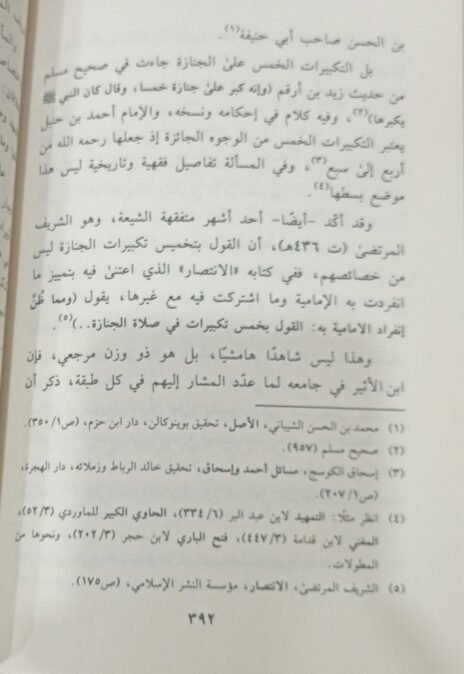 بن الحسن صاحب أبي حنيفة(١).
بل التكبيرات الخمس على الجنازة جاءت في صحيح مسلم
من حديث زيد بن أرقم (وإنه كبر على جنازة خمسا، وقال كان النبي ﷺ
يكبرها)(٢)، وفيه كلام في إحكامه ونسخه، والإمام أحمد بن حنبل
يعتبر التكبيرات الخمس من الوجوه الجائزة إذ جعلها رحمه الله من
أربع إلى سبع(٣)، وفي المسألة تفاصيل فقهية وتاريخية ليس هذا
موضع بسطها(٤).
وقد أكّد -أيضًا- أحد أشهر متفقهة الشيعة، وهو الشريف
المرتضى (ت ٤٣٦هـ)، أن القول بتخميس تكبيرات الجنازة ليس
من خصائصهم، ففي كتابه «الانتصار» الذي اعتنى فيه بتمييز ما
انفردت به الإمامية وما اشتركت فيه مع غيرها، يقول (ومما ظُنَّ
إنفراد الامامية به: القول بخمس تكبيرات في صلاة الجنازة..)(٥).
وهذا ليس شاهدًا هامشيًا، بل هو ذو وزن مرجعي، فإن
ابن الأثير في جامعه لما عدّد المشار إليهم في كل طبقة، ذكر أن
(١) محمد بن الحسن الشيباني، الأصل، تحقيق بوينوكالن، دار ابن حزم، (ص١/٣٥٠).
(٢) صحيح مسلم (٩٥٧).
(٣) إسحاق الكوسج، مسائل أحمد وإسحاق، تحقيق خالد الرباط وزملائه، دار الهجرة،
(ص١/٢٠٧).
(٤) انظر مثلًا: التمهيد لابن عبد البر (٦/٣٣٤)، الحاوي الكبير للماوردي (٣/٥٢)،
المغني لابن قدامة (٣/٤٤٧)، فتح الباري لابن حجر (٣/٢٠٢)، ونحوها من
المطولات.
(٥) الشريف المرتضى، الانتصار، مؤسسة النشر الإسلامي، (ص١٧٥).
٣٩٢